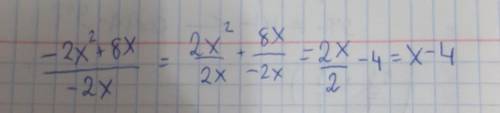 (-2x² + 8x)/(-2x) = 2x²/2x + 8x/-2x = 2x/2 - 4 = x - 4